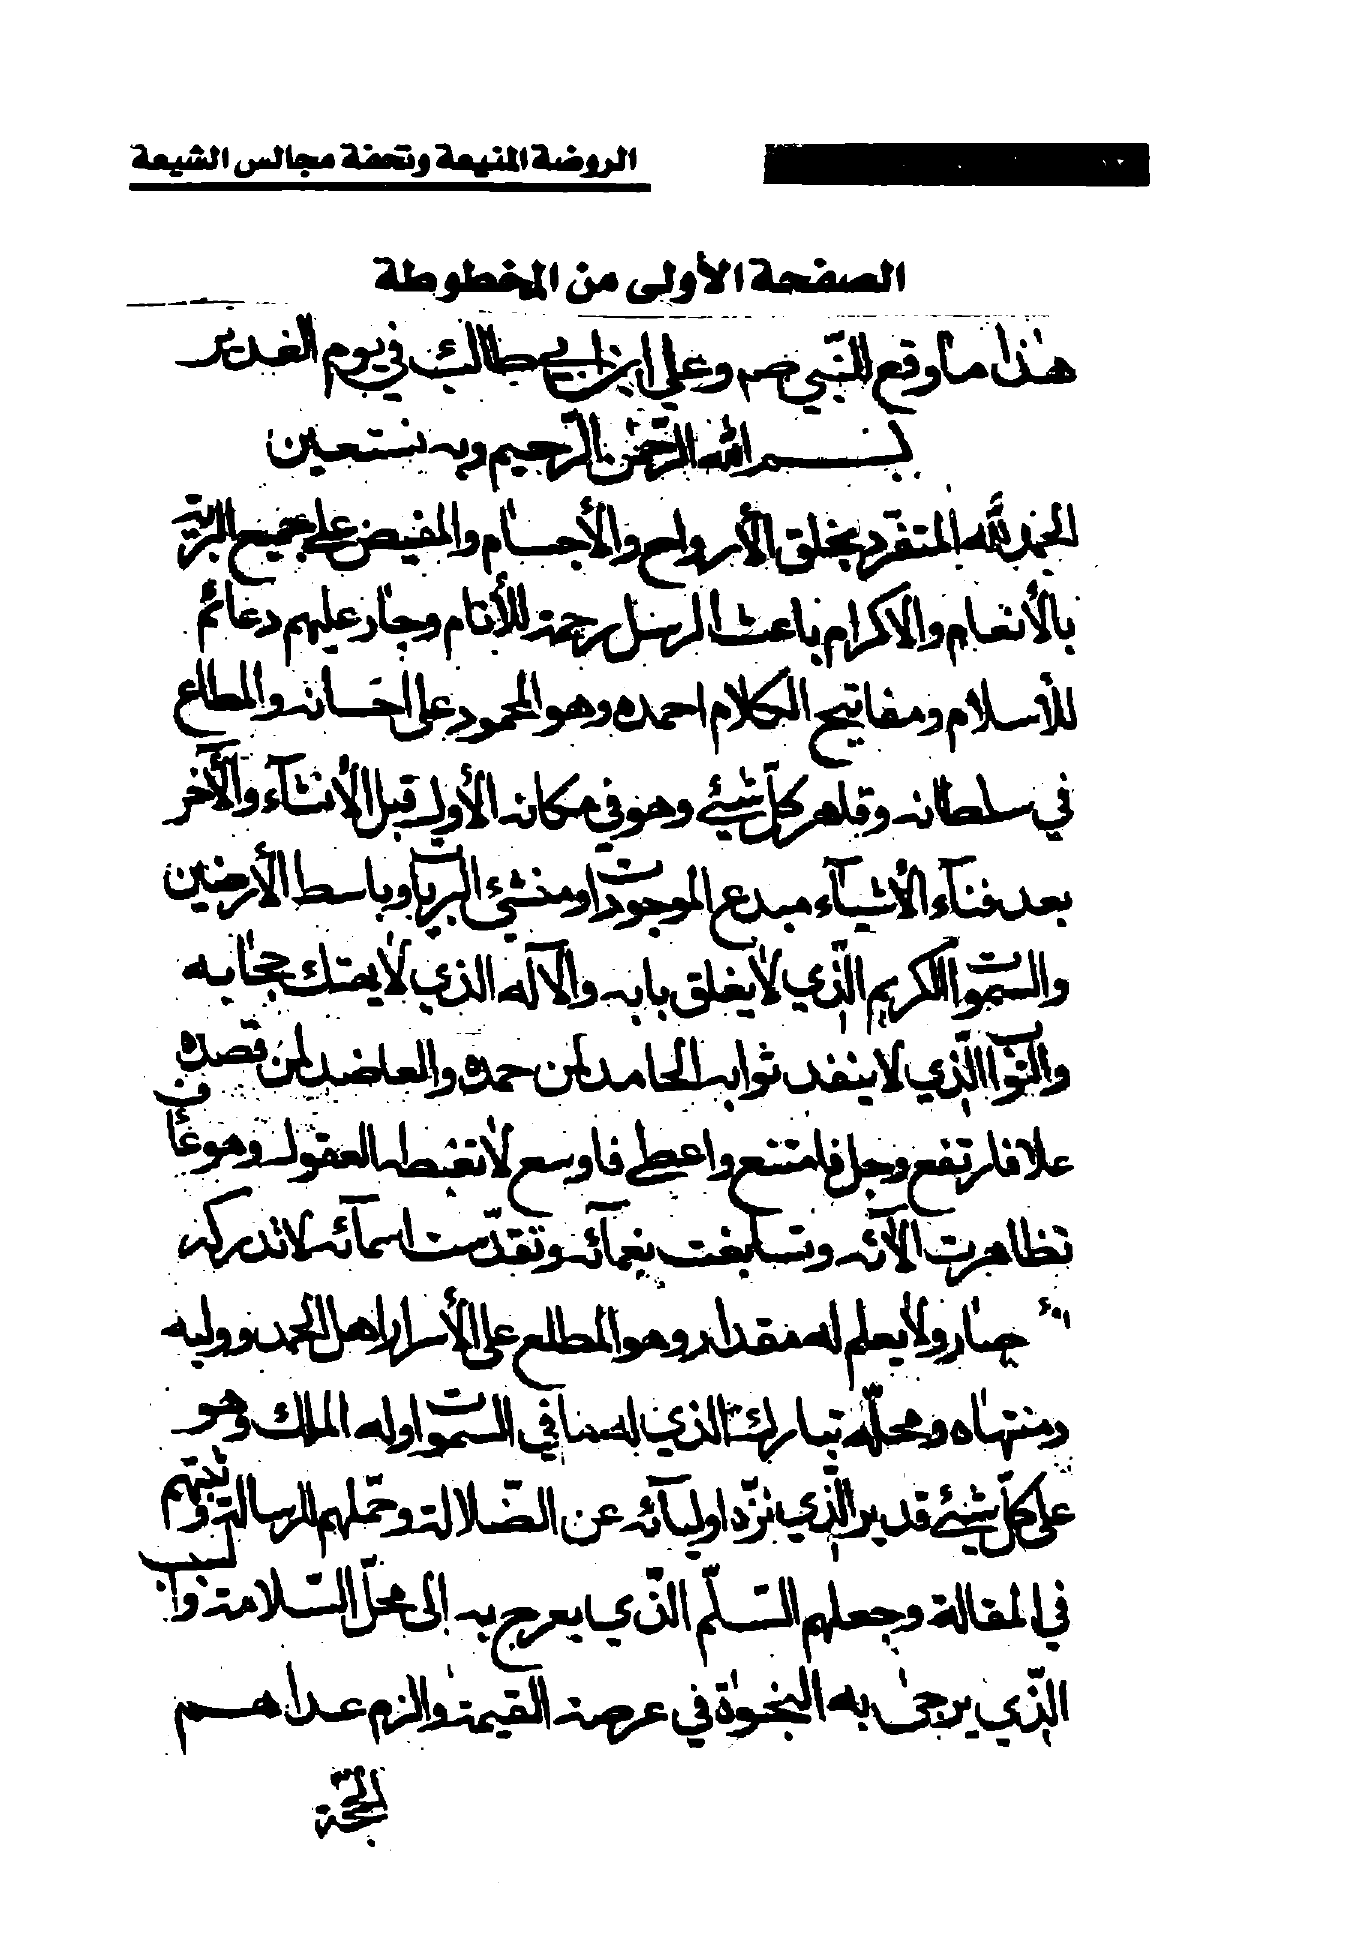 الروضة المنيعة وتحفة مجالس الشيعة
الصفحة الأولى من المخطوطة
هذا ما وقع النّبي صم وعلي ابن ابي طالب في يوم الغدير
بسم الله الرّحمٰن الرّحيم وبه نستعين
الحمد لله المتفرّد بخلق الأرواح والأجسام والمفيض على جميع البريّة
بالأنعام والاكرام باعث الرسل رحمة للأنام وجاعلهم دعائم
للأسلام ومفاتيح الكلام احمده وهو المحمود على احسانه والمطاع
في سلطانه وقاهر كلّ شيئ وهو في مكانه الأول قبل الأنشآء والآخر
بعد فنآء الأشيآء مبدع الموجودات ومنشئ البريّات وباسط الأرضين
والسّموات الكريم الّذي لا يغلق بابه والآله الذي لا يهتك حجابه
والتواب الّذي لا ينفد ثوابه الحامد لمن حمده والعاضد لمن قصده
علا فارتفع وجل فامتنع واعطى فاوسع لا تغبطه العقول وهو
تظاهرت الآئه وتسابغت نعمآئه وتقدّست اسمآئه لا تدركه
صار ولا يعلم له مقدار وهو المطلع على الأسرار اهل الحمد ووليه
ومنتهاه ومحلّه تبارك الذي له ما في السّموات وله الملك وهو
على كلّ شيئ قدير الّذي نزّه اوليآئه عن الضّلالة وحمّلهم الرسالة
في المقالة وجعلهم السّلّم الّذي يعرج به الى محلّ السّلامة
الّذي يرجىٰ به النجوة في عرصة القيمة والزم عداهم
الحجّة